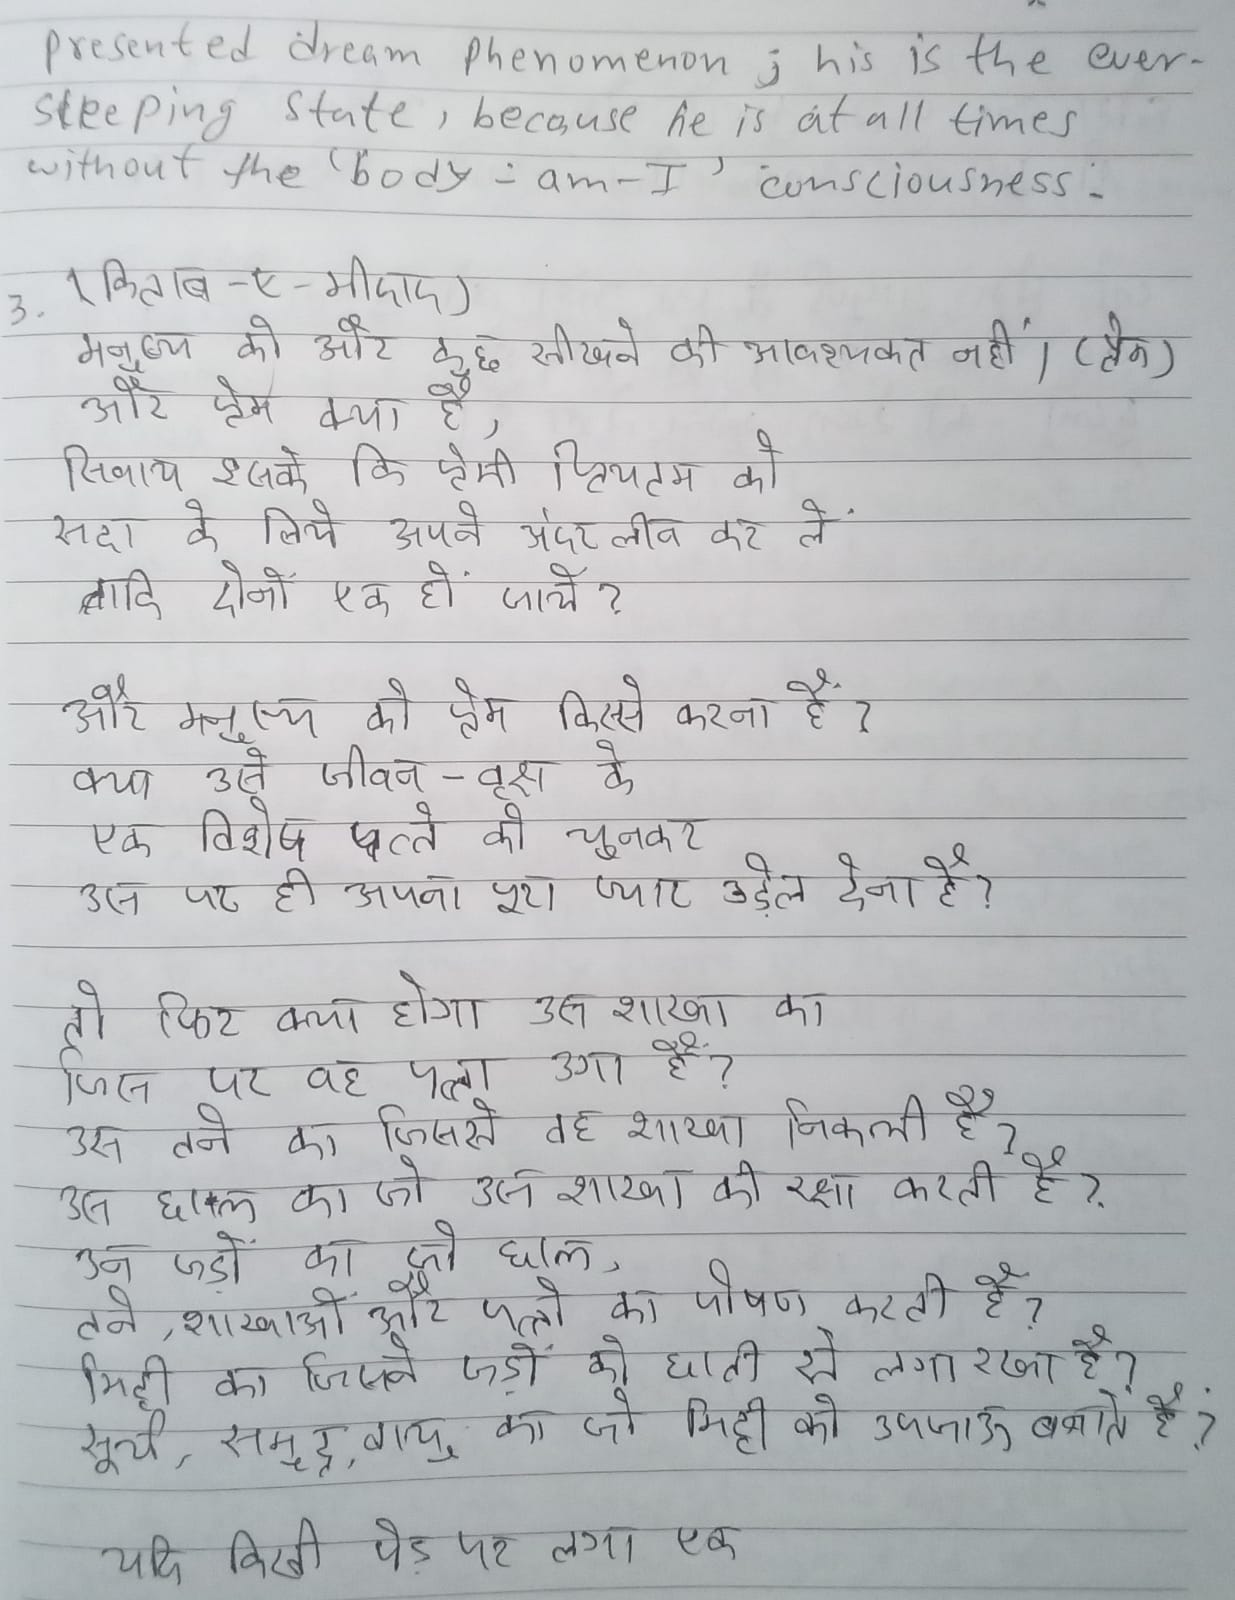 presented dream phenomenon; his is the ever-
sleeping state, because he is at all times
without the 'body-am-I' consciousness.
3. (किताब-ए-मीरदाद)
मनुष्य को और कुछ सीखने की आवश्यकत नहीं। (प्रेम)
और प्रेम क्या है,
सिवाय इसके कि प्रेमी प्रियतम को
सदा के लिये अपने अंदर लीन कर लें
ताकि दोनों एक हों जायें?
और मनुष्य को प्रेम किससे करना हैं?
क्या उसे जीवन-वृक्ष के
एक विशेष पत्ते को चुनकर
उस पर ही अपना पूरा प्यार उड़ेल देना है?
तो फिर क्या होगा उस शाखा का
जिस पर वह पत्ता उगा हैं?
उस तने का जिससे वह शाखा निकली है?
उस छाल का जो उस शाखा की रक्षा करती है?
उन जड़ों का जो छाल,
तने, शाखाओं और पत्तो का पोषण करती हैं?
मिट्टी का जिसने जड़ों को छाती से लगा रखा है?
सूर्य, समुद्र, वायु का जो मिट्टी को उपजाऊ बनाते हैं?
यदि किसी पेड़ पर लगा एक